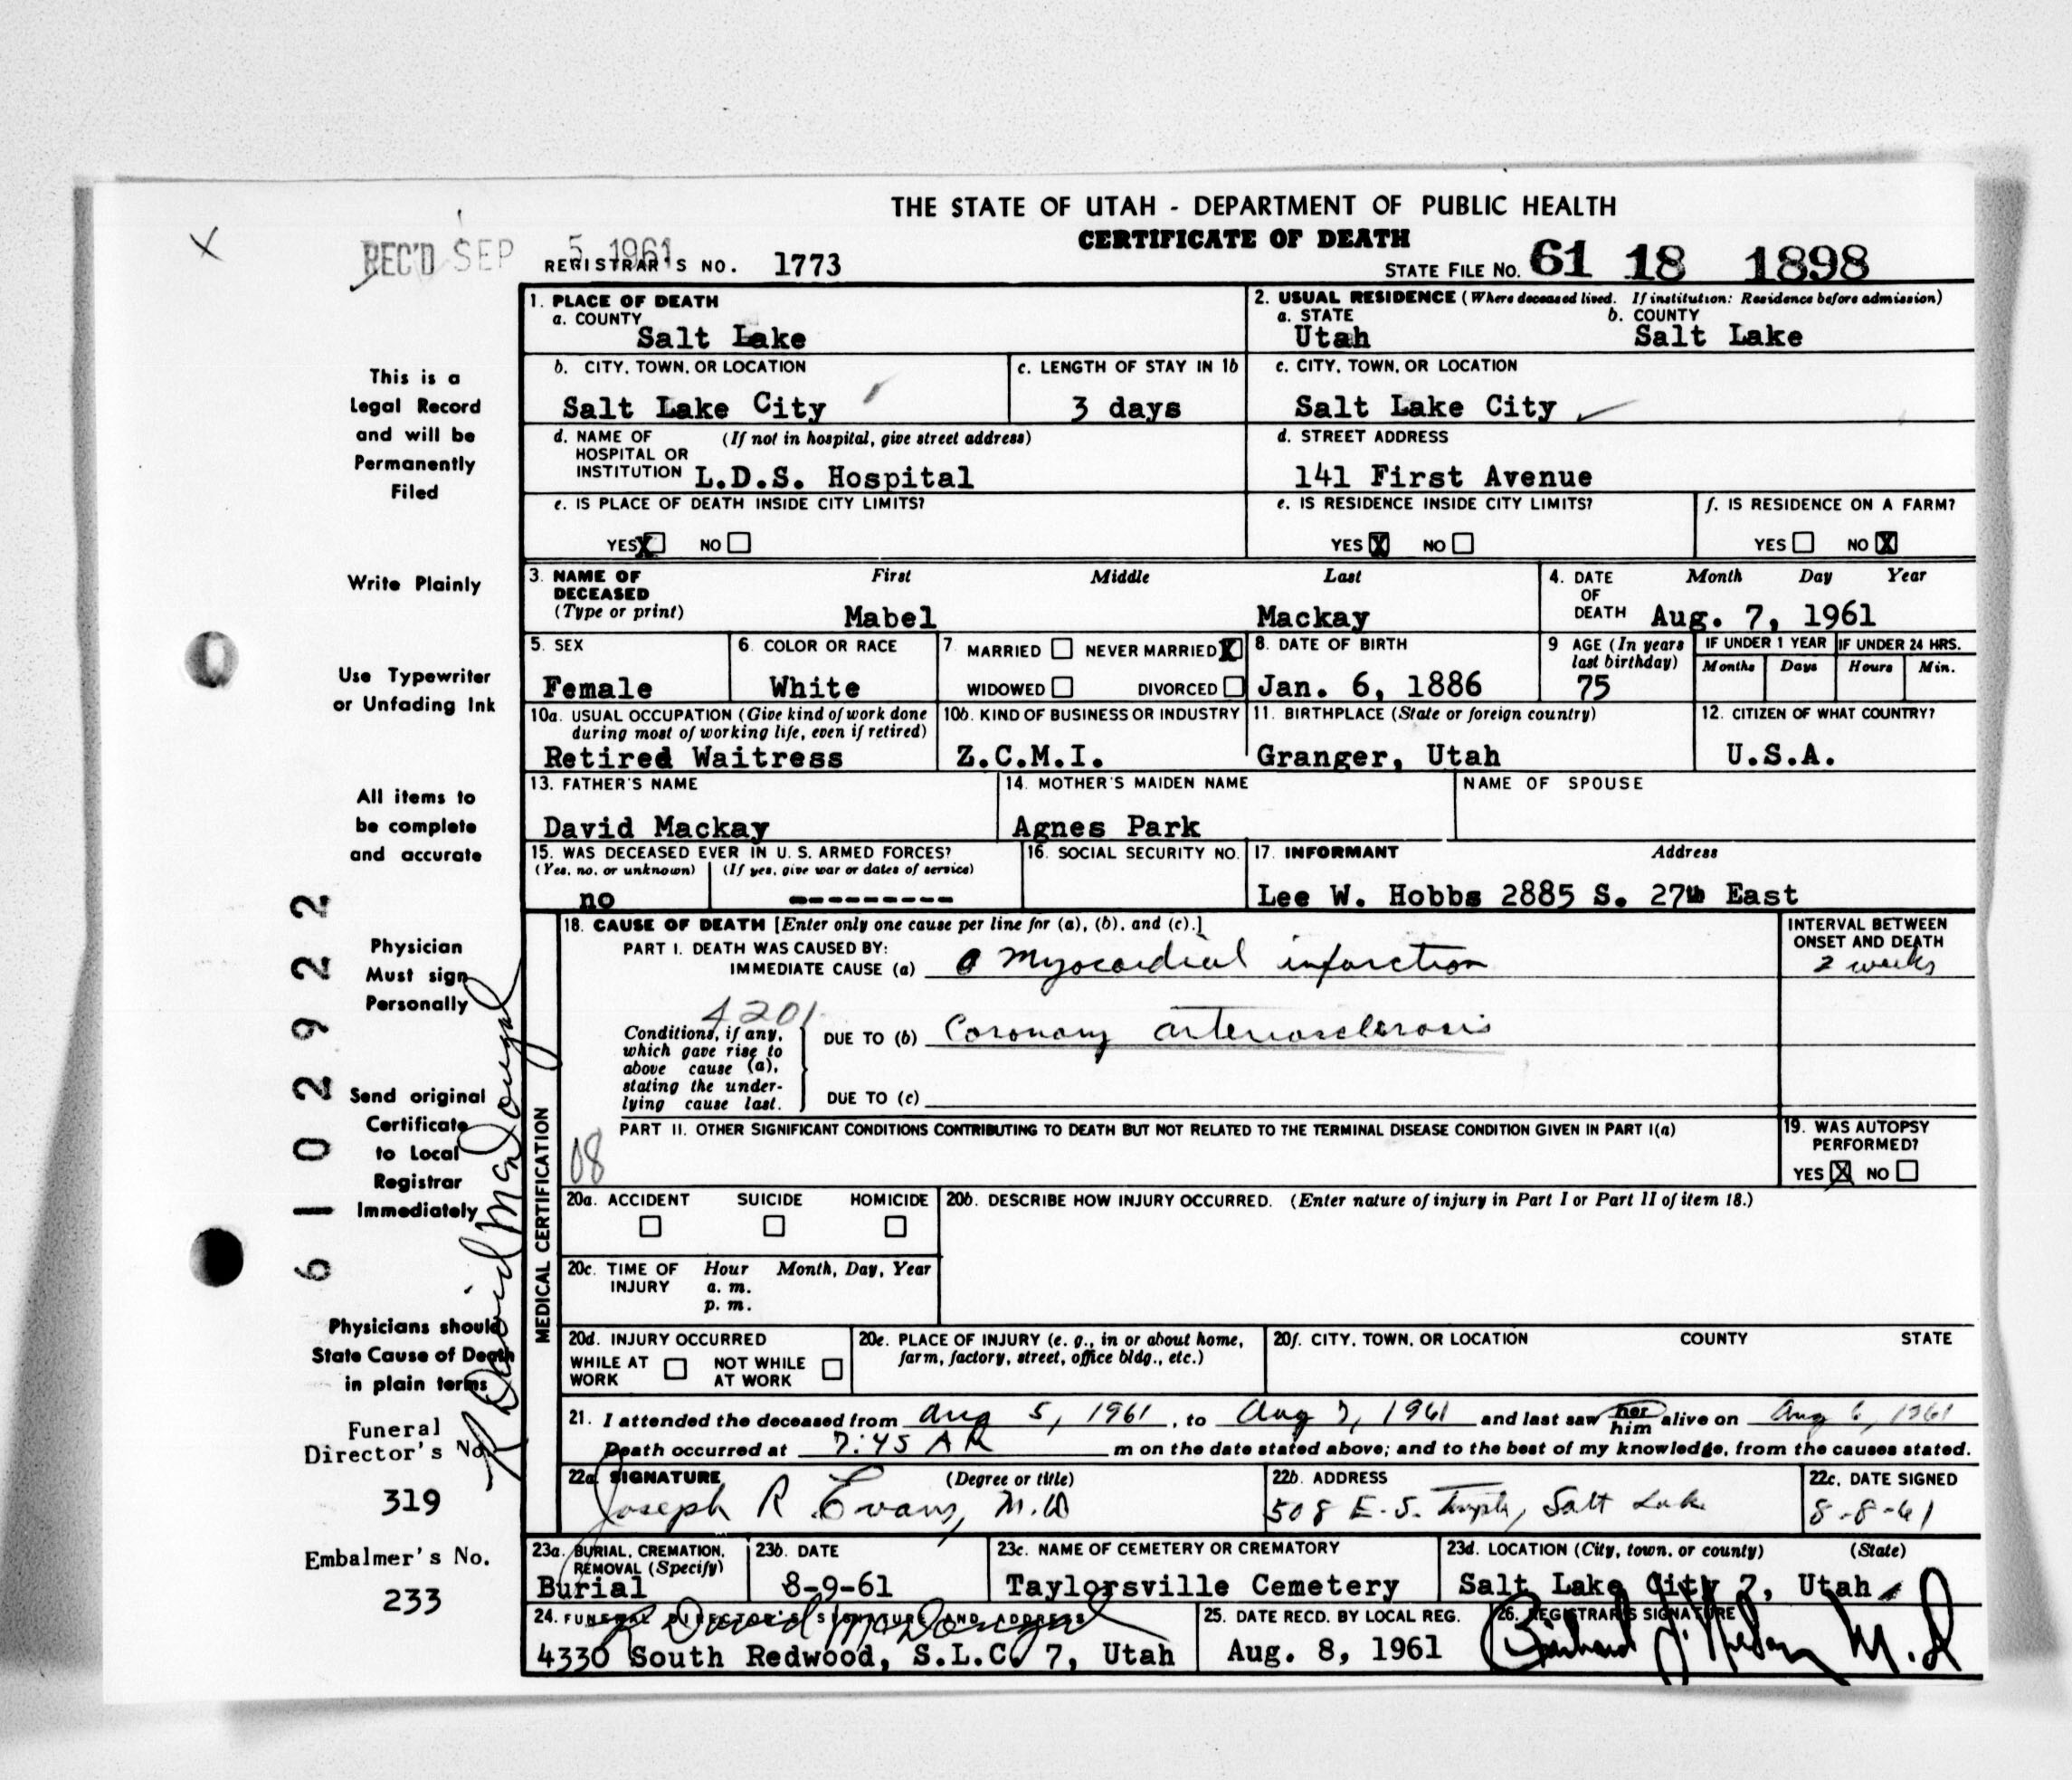 THE STATE OF UTAH - DEPARTMENT OF PUBLIC HEALTH
CERTIFICATE OF DEATH
REC'D SEP 5 1961
REGISTRAR'S NO. 1773
STATE FILE NO. 61 18 1898
1. PLACE OF DEATH
a. COUNTY
Salt Lake
2. USUAL RESIDENCE (Where deceased lived. If institution: Residence before admission)
a. STATE b. COUNTY
Utah Salt Lake
b. CITY, TOWN, OR LOCATION
Salt Lake City
c. LENGTH OF STAY IN 1b
3 days
c. CITY, TOWN, OR LOCATION
Salt Lake City
d. NAME OF HOSPITAL OR INSTITUTION (If not in hospital, give street address)
L.D.S. Hospital
d. STREET ADDRESS
141 First Avenue
e. IS PLACE OF DEATH INSIDE CITY LIMITS?
YES X NO
e. IS RESIDENCE INSIDE CITY LIMITS?
YES X NO
f. IS RESIDENCE ON A FARM?
YES NO X
3. NAME OF DECEASED (Type or print)
First Middle Last
Mabel Mackay
4. DATE OF DEATH Month Day Year
Aug. 7, 1961
5. SEX
Female
6. COLOR OR RACE
White
7 MARRIED NEVER MARRIED X
WIDOWED DIVORCED
8. DATE OF BIRTH
Jan. 6, 1886
9 AGE (In years last birthday)
75
IF UNDER 1 YEAR IF UNDER 24 HRS.
Months Days Hours Min.
10a. USUAL OCCUPATION (Give kind of work done during most of working life, even if retired)
Retired Waitress
10b. KIND OF BUSINESS OR INDUSTRY
Z.C.M.I.
11. BIRTHPLACE (State or foreign country)
Granger, Utah
12. CITIZEN OF WHAT COUNTRY?
U.S.A.
13. FATHER'S NAME
David Mackay
14. MOTHER'S MAIDEN NAME
Agnes Park
NAME OF SPOUSE
15. WAS DECEASED EVER IN U. S. ARMED FORCES?
(Yes, no, or unknown) (If yes, give war or dates of service)
no ---------
16. SOCIAL SECURITY NO.
17. INFORMANT Address
Lee W. Hobbs 2885 S. 27th East
18. CAUSE OF DEATH [Enter only one cause per line for (a), (b), and (c).]
PART I. DEATH WAS CAUSED BY:
IMMEDIATE CAUSE (a) Myocardial infarction
INTERVAL BETWEEN ONSET AND DEATH
2 weeks
4201
Conditions, if any, which gave rise to above cause (a), stating the underlying cause last.
DUE TO (b) Coronary arteriosclerosis
DUE TO (c)
PART II. OTHER SIGNIFICANT CONDITIONS CONTRIBUTING TO DEATH BUT NOT RELATED TO THE TERMINAL DISEASE CONDITION GIVEN IN PART I(a)
08
19. WAS AUTOPSY PERFORMED?
YES X NO
MEDICAL CERTIFICATION
20a. ACCIDENT SUICIDE HOMICIDE
20b. DESCRIBE HOW INJURY OCCURRED. (Enter nature of injury in Part I or Part II of item 18.)
20c. TIME OF INJURY Hour Month, Day, Year
a. m.
p. m.
20d. INJURY OCCURRED
WHILE AT WORK NOT WHILE AT WORK
20e. PLACE OF INJURY (e. g., in or about home, farm, factory, street, office bldg., etc.)
20f. CITY, TOWN, OR LOCATION COUNTY STATE
21. I attended the deceased from Aug 5, 1961, to Aug 7, 1961 and last saw her him alive on Aug 6, 1961
Death occurred at 7:45 A m on the date stated above; and to the best of my knowledge, from the causes stated.
22a. SIGNATURE (Degree or title)
Joseph R Evans, M.D
22b. ADDRESS
508 E. S. Temple, Salt Lake
22c. DATE SIGNED
8-8-61
23a. BURIAL, CREMATION, REMOVAL (Specify)
Burial
23b. DATE
8-9-61
23c. NAME OF CEMETERY OR CREMATORY
Taylorsville Cemetery
23d. LOCATION (City, town, or county) (State)
Salt Lake City 7, Utah
24. FUNERAL DIRECTOR'S SIGNATURE AND ADDRESS
R David McDougal
4330 South Redwood, S.L.C. 7, Utah
25. DATE RECD. BY LOCAL REG.
Aug. 8, 1961
26. REGISTRAR'S SIGNATURE
M.D
This is a
Legal Record
and will be
Permanently
Filed
Write Plainly
Use Typewriter
or Unfading Ink
All items to
be complete
and accurate
Physician
Must sign
Personally
Send original
Certificate
to Local
Registrar
Immediately
Physicians should
State Cause of Death
in plain terms
Funeral
Director's No.
319
Embalmer's No.
233
61029922
R David McDougal